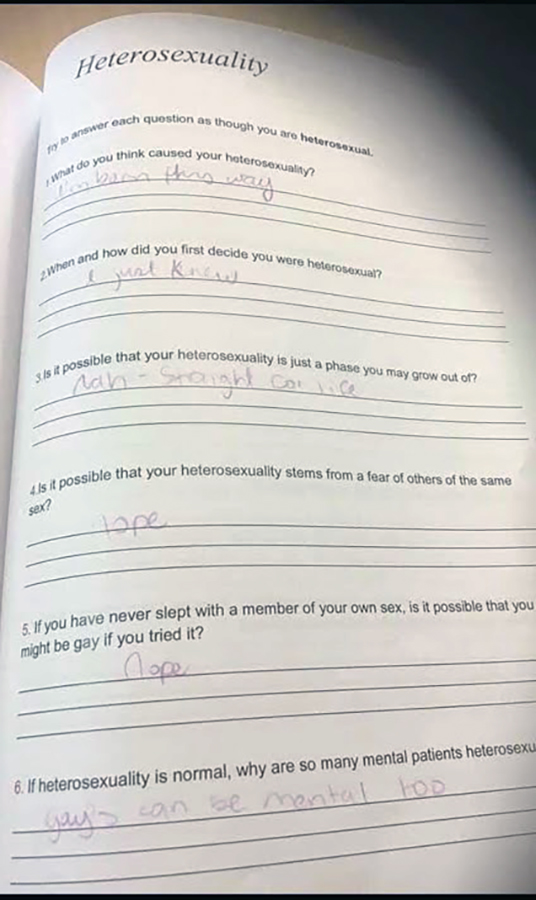 Heterosexuality
Try to answer each question as though you are heterosexual.
1.What do you think caused your heterosexuality?
I'm born this way
2.When and how did you first decide you were heterosexual?
I just knew
3.Is it possible that your heterosexuality is just a phase you may grow out of?
Nah - Straight for life
4.Is it possible that your heterosexuality stems from a fear of others of the same
sex?
Nope
5. If you have never slept with a member of your own sex, is it possible that you
might be gay if you tried it?
Nope
6. If heterosexuality is normal, why are so many mental patients heterosexu
gay's can be mental too